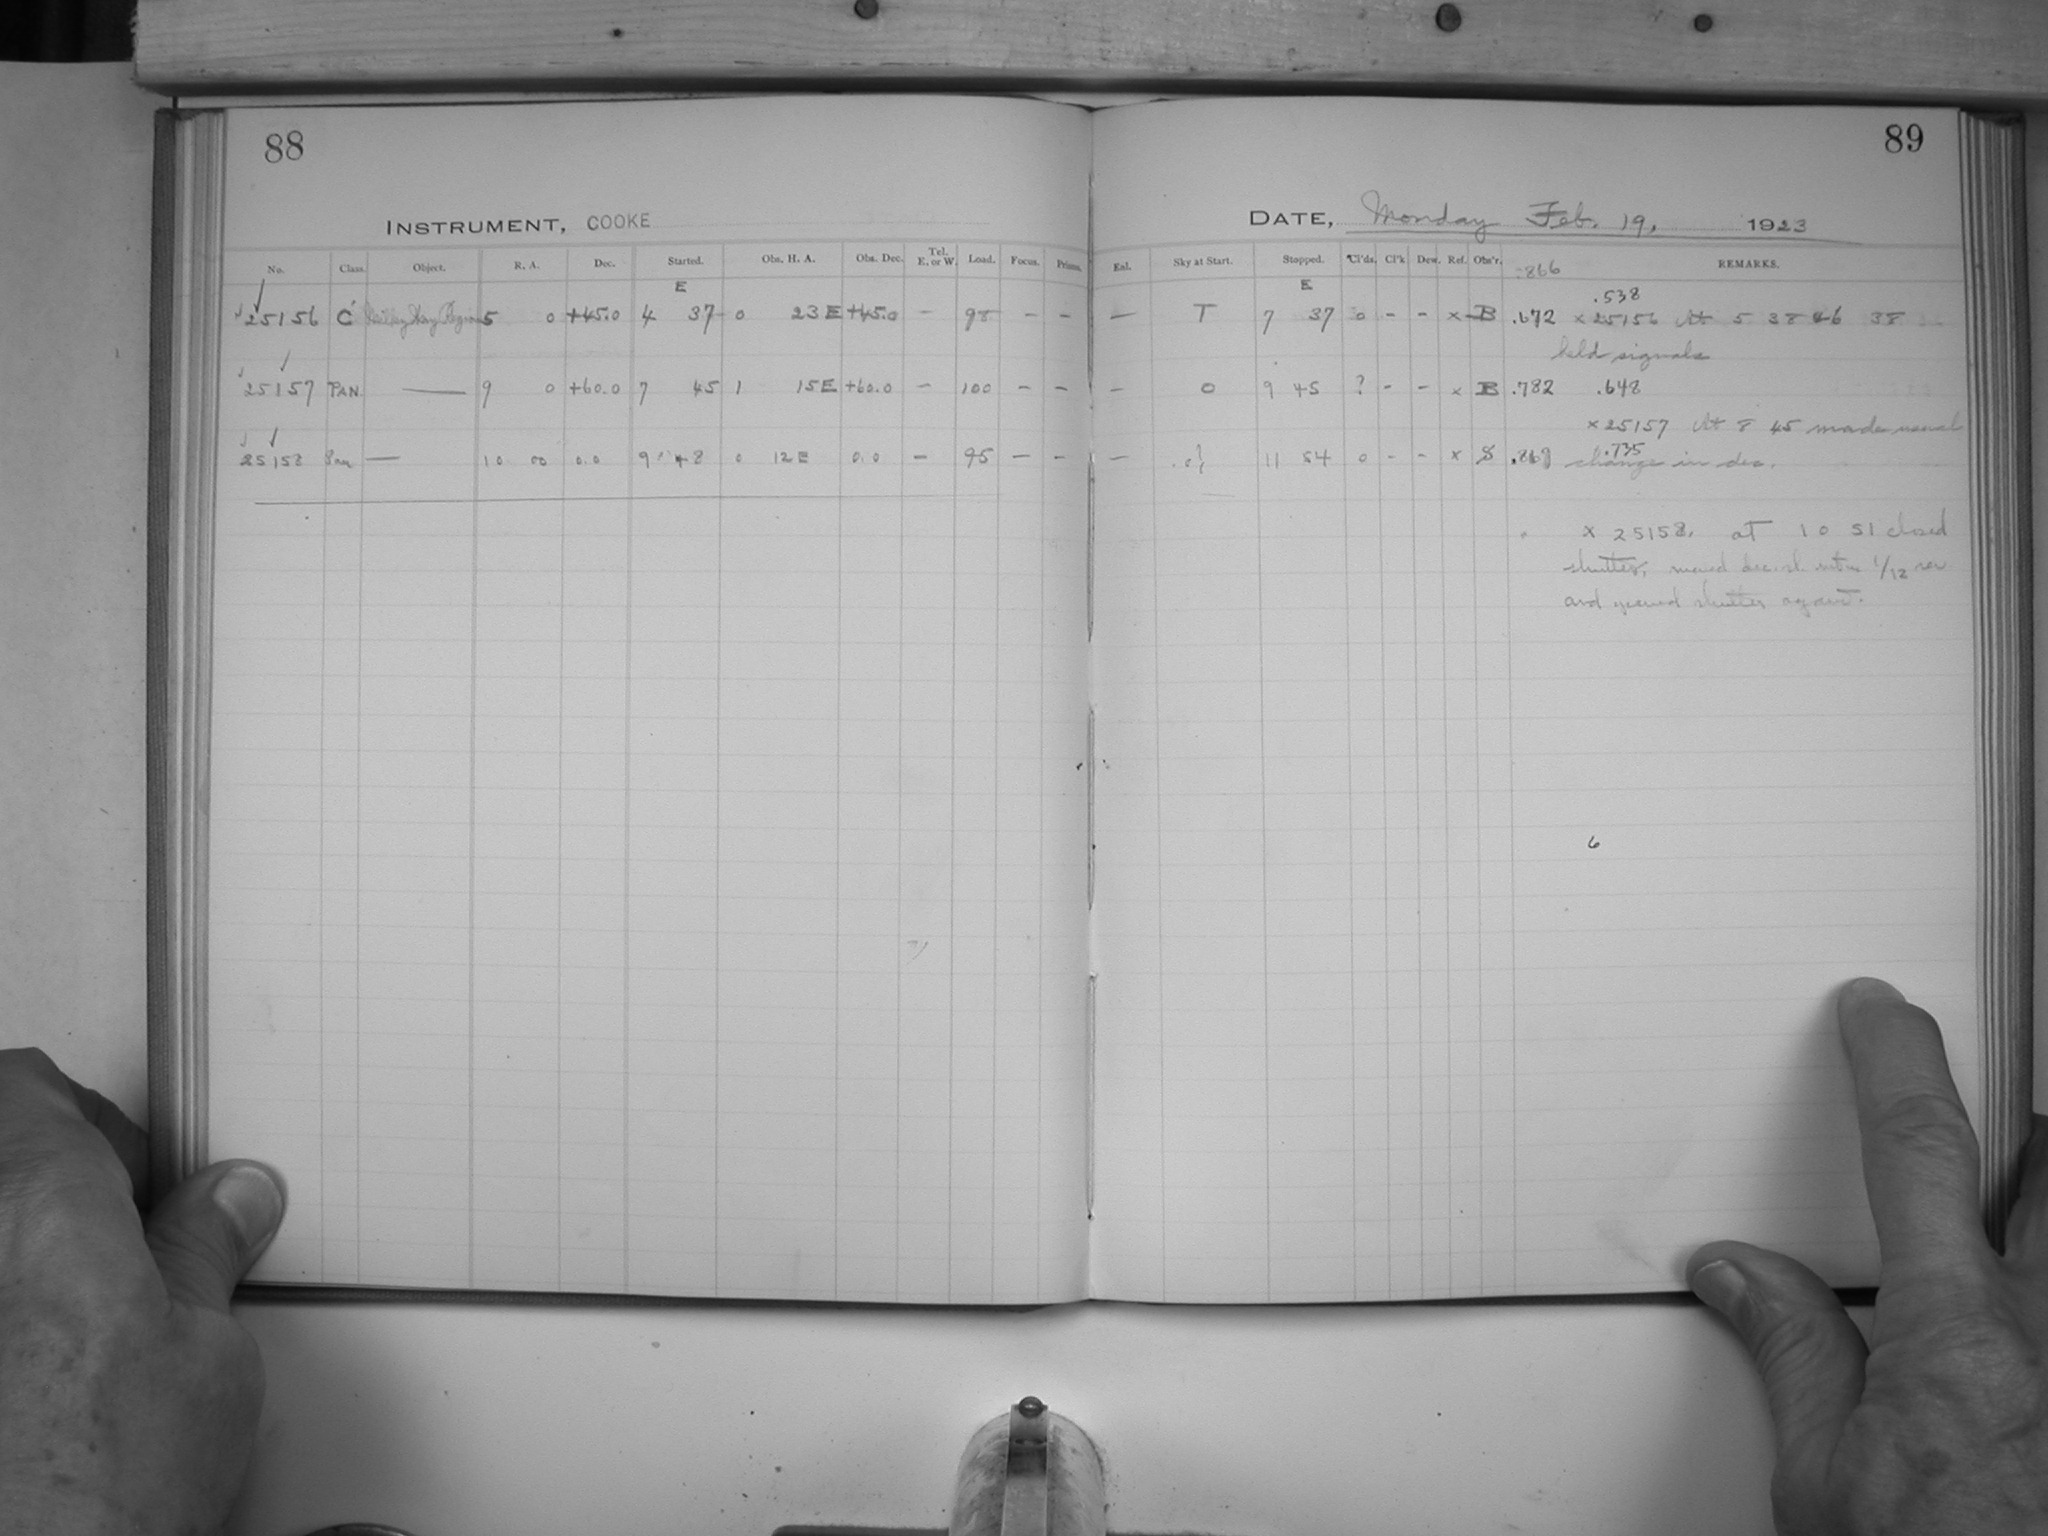 88
INSTRUMENT, COOKE
No. Class. Object. R. A. Dec. Started. Obs. H. A. Obs. Dec. Tel. E. or W. Load. Focus. Prisms.
E
25156 C Milky Way Region 5 0 +45.0 4 37 0 23 E +45.0 - 98 - -
25157 PAN. — 9 0 +60.0 7 45 1 15 E +60.0 - 100 - -
25158 Pan — 10 00 0.0 9 48 0 12 E 0.0 - 95 - -
89
DATE, Monday Feb. 19, 1923
Eal. Sky at Start. Stopped. Cl'ds. Cl'k Dew. Ref. Obs'r. REMARKS.
.866
E
.538
— T 7 37 0 - - x B .672 x 25156 At 5 38 46 38
held signals
— 0 9 45 ? - - x B .782 .648
x 25157 At 8 45 made usual
— .0? 11 54 0 - - x S .735
change in dec.
x 25158. at 10 51 closed
shutter, moved 1/12 rev
and opened shutter again.
6